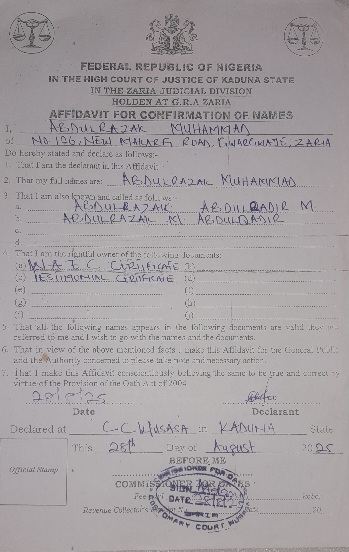 FEDERAL REPUBLIC OF NIGERIA
IN THE HIGH COURT OF JUSTICE OF KADUNA STATE
IN THE ZARIA JUDICIAL DIVISION
HOLDEN AT G.R.A ZARIA
AFFIDAVIT FOR CONFIRMATION OF NAMES
I, ABDULRAZAK MUHAMMAD
of NO 126, NEW MAKARFI ROAD, ZARIA
Do hereby stated and declare as follows:-
1. That I am the declarant in this Affidavit
2. That my full names are: ABDULRAZAK MUHAMMAD
3. That I am also known and called as follows:
a. ABDULRAZAK ABDULKADIR M.
b. ABDULRAZAK M. ABDULKADIR
c.
d.
4. That I am the rightful owner of the following documents:
(a) W.A.E.C CERTIFICATE
(c) TESTIMONIAL CERTIFICATE
(e)
(g)
(i) (j)
5. That all the following names appears in the following documents are valid
referred to me and I wish to go with the names and the documents.
6. That in view of the above mentioned facts, I make this Affidavit for the General Public
and the Authority concerned to please take note and necessary action.
7. That I make this Affidavit conscientiously believing the same to be true and correct by
virtue of the Provision of the Oath Act of 2004
Date Declarant
Declared at C-C WUSASA in KADUNA State
This 28th Day of August 2025
BEFORE ME
Official Stamp
COMMISSIONER FOR OATHS
SIGN
DATE
CUSTOMARY COURT
Fee kobo
Revenue Collector's 20